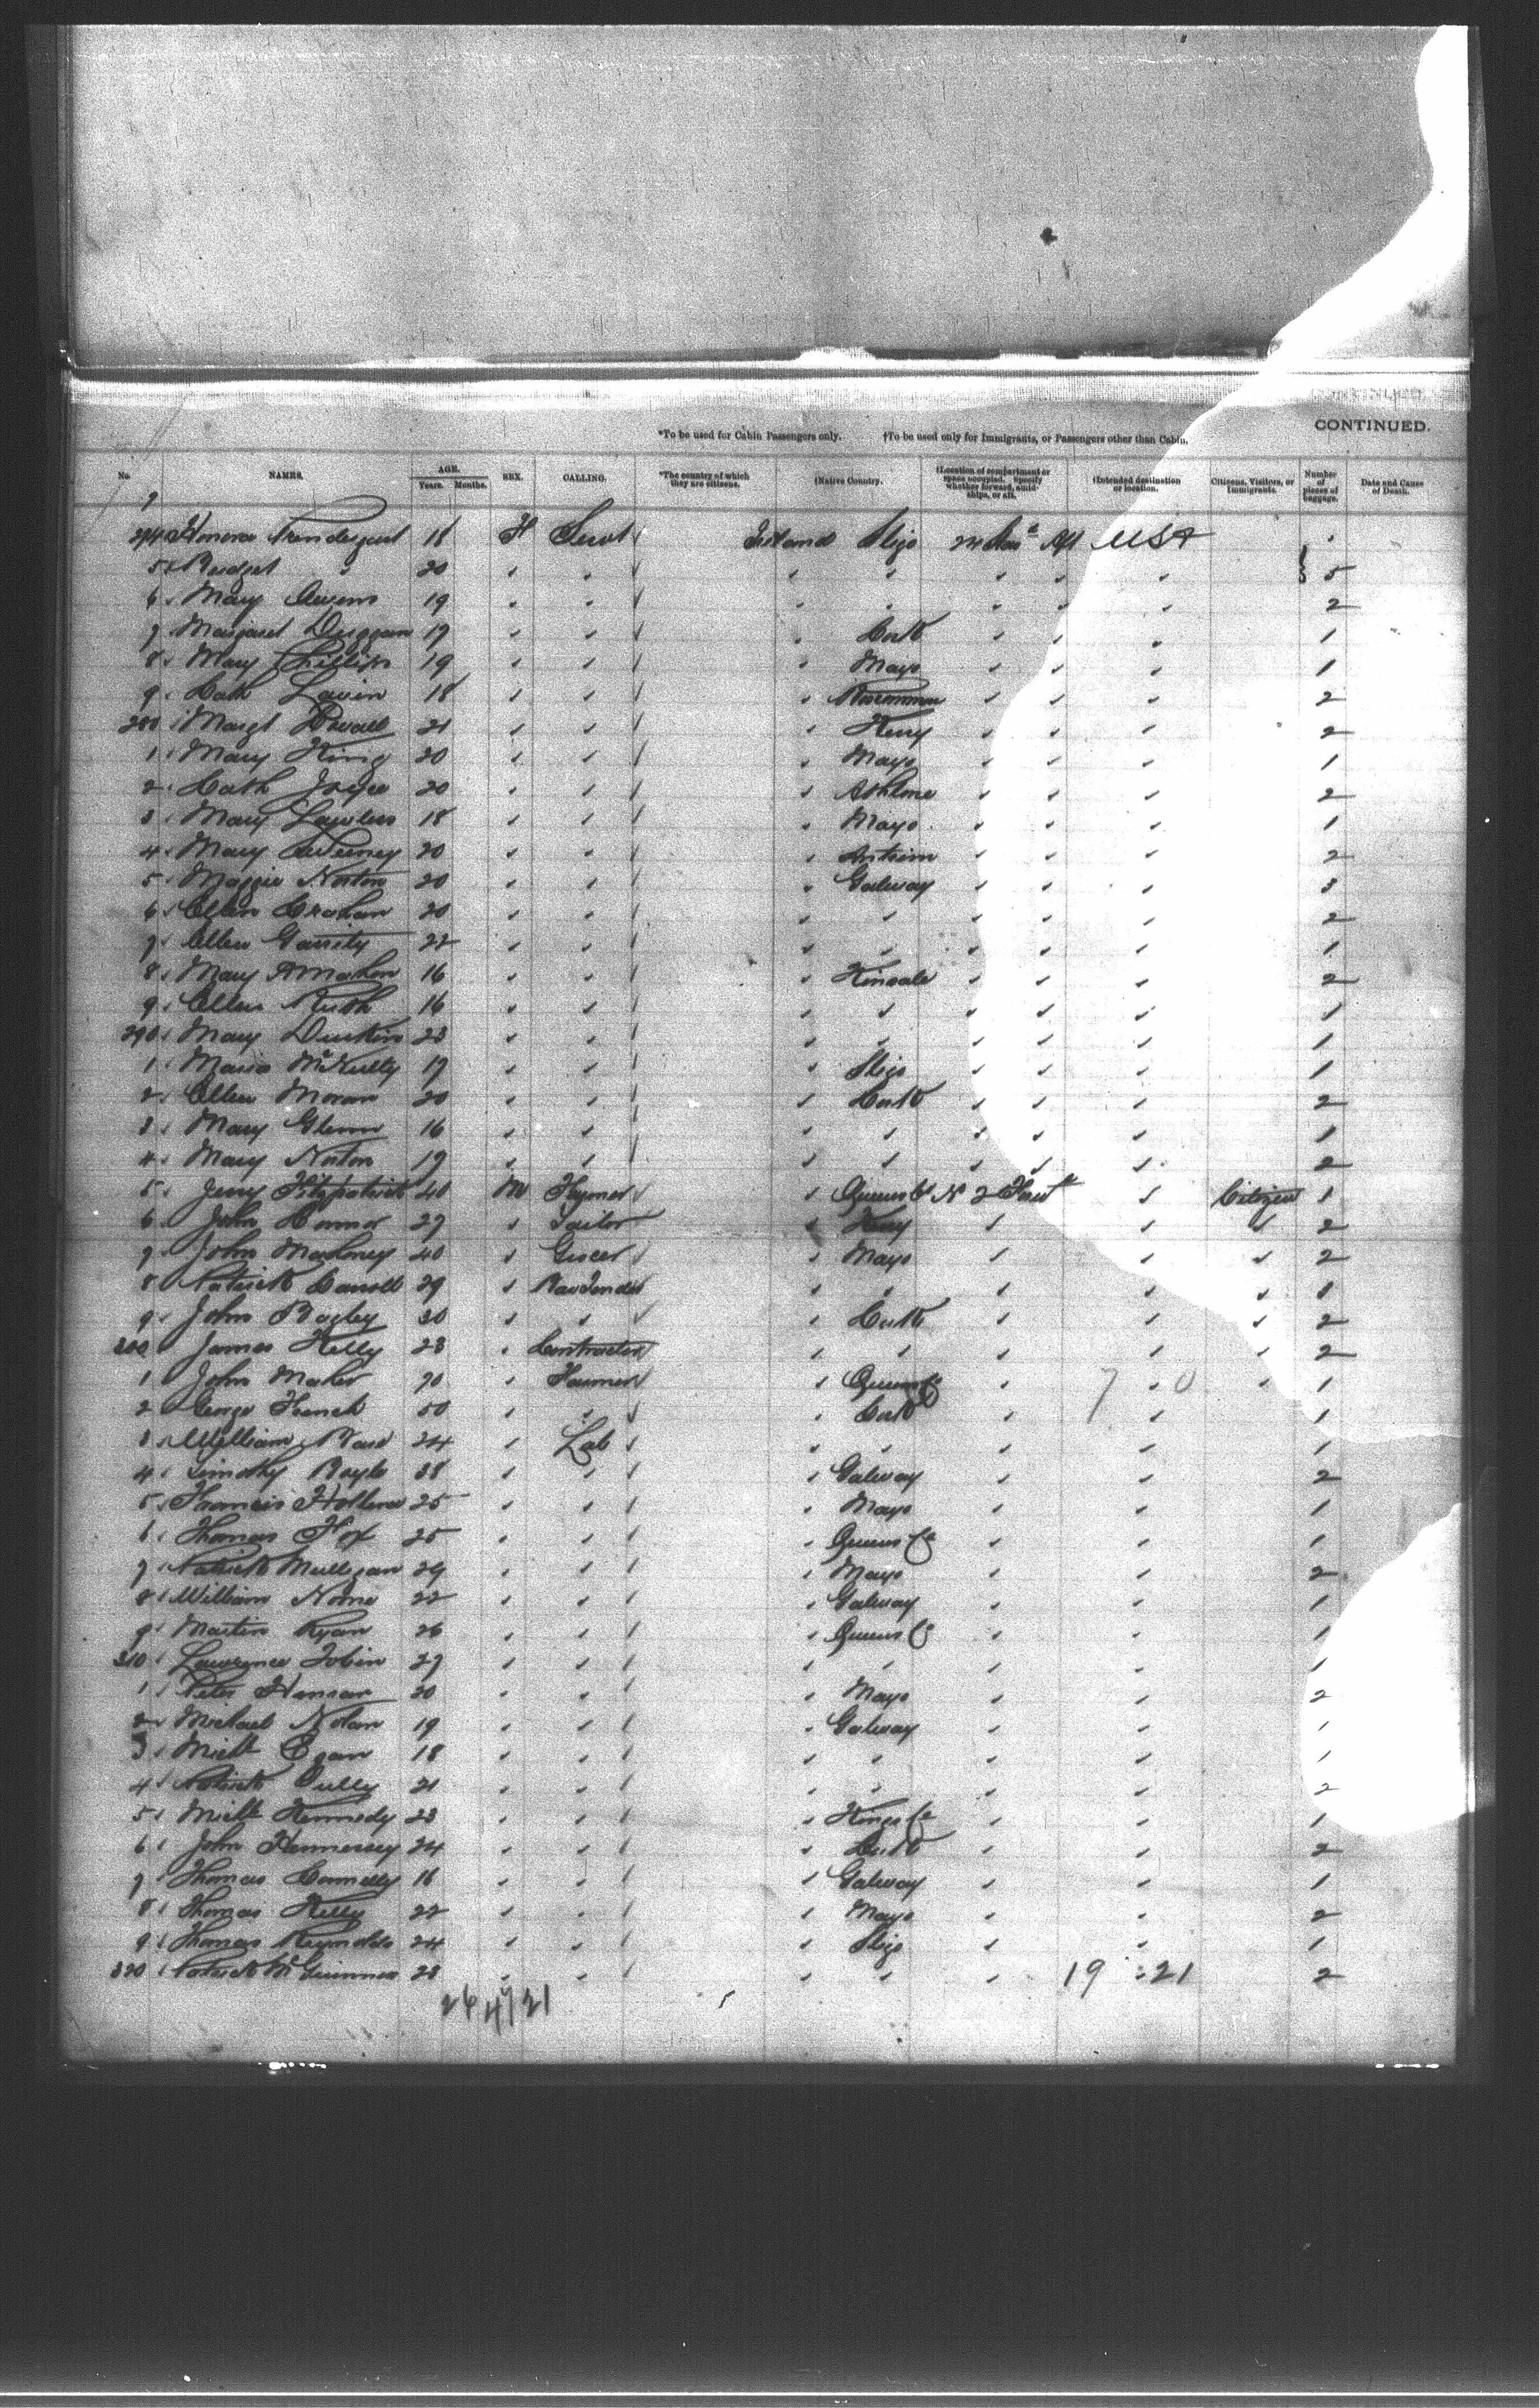 CONTINUED.
*To be used for Cabin Passengers only. †To be used only for Immigrants, or Passengers other than Cabin.
No. NAMES. AGE. Years. Months. SEX. CALLING. *The country of which they are citizens. †Native Country. †Location of compartment or space occupied. Specify whether forward, amidships, or aft. †Intended destination or location. Citizens, Visitors, or Immigrants. Number of pieces of baggage. Date and Cause of Death.
274 Honora Prendergast 18 F Servt Ireland Sligo Aft USA
5 Bridget " 20 5
6 Mary Owens 19 2
7 Margaret Duggan 19 Cork 1
8 Mary Phillips 19 Mayo 1
9 Cath Lavin 18 Roscommon 2
280 Margt 21 Kerry 2
1 Mary King 20 Mayo 1
2 Cath Joyce 20 Athlone 2
3 Mary Lawless 18 Mayo 1
4 Mary Sweeney 20 Antrim 2
5 Maggie Norton 20 Galway 3
6 Ellen Crahan 20 2
7 Ellen Garrity 22 1
8 Mary 16 Kinsale 2
9 Ellen Ruth 16 1
290 Mary Durkin 23 1
1 Maria McNulty 19 Sligo 1
2 Ellen Moran 20 Cork 2
3 Mary Glenn 16 1
4 Mary Norton 19 2
5 Jerry Fitzpatrick 40 M Queens Co N 2 Citizen 1
6 John Connor 27 Tailor Kerry 2
7 John Mahoney 40 Grocer Mayo 2
8 Patrick Carroll 29 Bartender
9 John Bagley 30 Cork 2
300 James Kelly 23 Contractor 2
1 John Maher 70 Farmer Queens Co 7 0 1
2 George French 50 Cork 1
3 William 24 Lab 1
4 Timothy Boyle 38 Galway 2
5 Francis 25 Mayo 1
6 Thomas Fox 25 Queens Co 1
7 Patrick Mulligan 29 Mayo 2
8 William 22 Galway 1
9 Martin Ryan 26 Queens Co 1
310 Lawrence Tobin 27 1
1 Peter 20 Mayo 2
2 Michael Nolan 19 Galway 1
3 Michl Egan 18 1
4 Patrick Tully 21 2
5 Michl Kennedy 23 Kings Co 1
6 John Hennessey 24 Cork 2
7 Thomas Connelly 16 Galway 1
8 Thomas Kelly 22 Mayo 2
9 Thomas Reynolds 24 Sligo 1
320 Patrick McGuinness 23 19 21 2
26 21